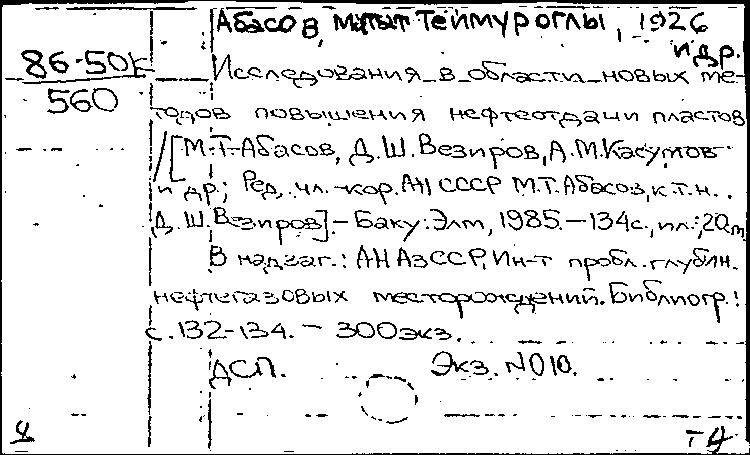 Абасов, Теймуроглы, 1926
и др.
86-50к
560
Исследования в области новых ме-
тодов повышения нефтеотдачи пластов
/[М.Т. Абасов, Д.Ш. Везиров, А.М. Касумов
и др.; Ред. чл.-кор. АН СССР М.Т. Абасов, к.т.н.
Д.Ш. Везиров].- Баку: Элм, 1985.-134с., ил.; 20см
В надзаг.: АН АзССР, Ин-т пробл. глубин.
нефтегазовых месторождений. Библиогр.:
с. 132-134. - 300экз.
ДСП. Экз. N010.